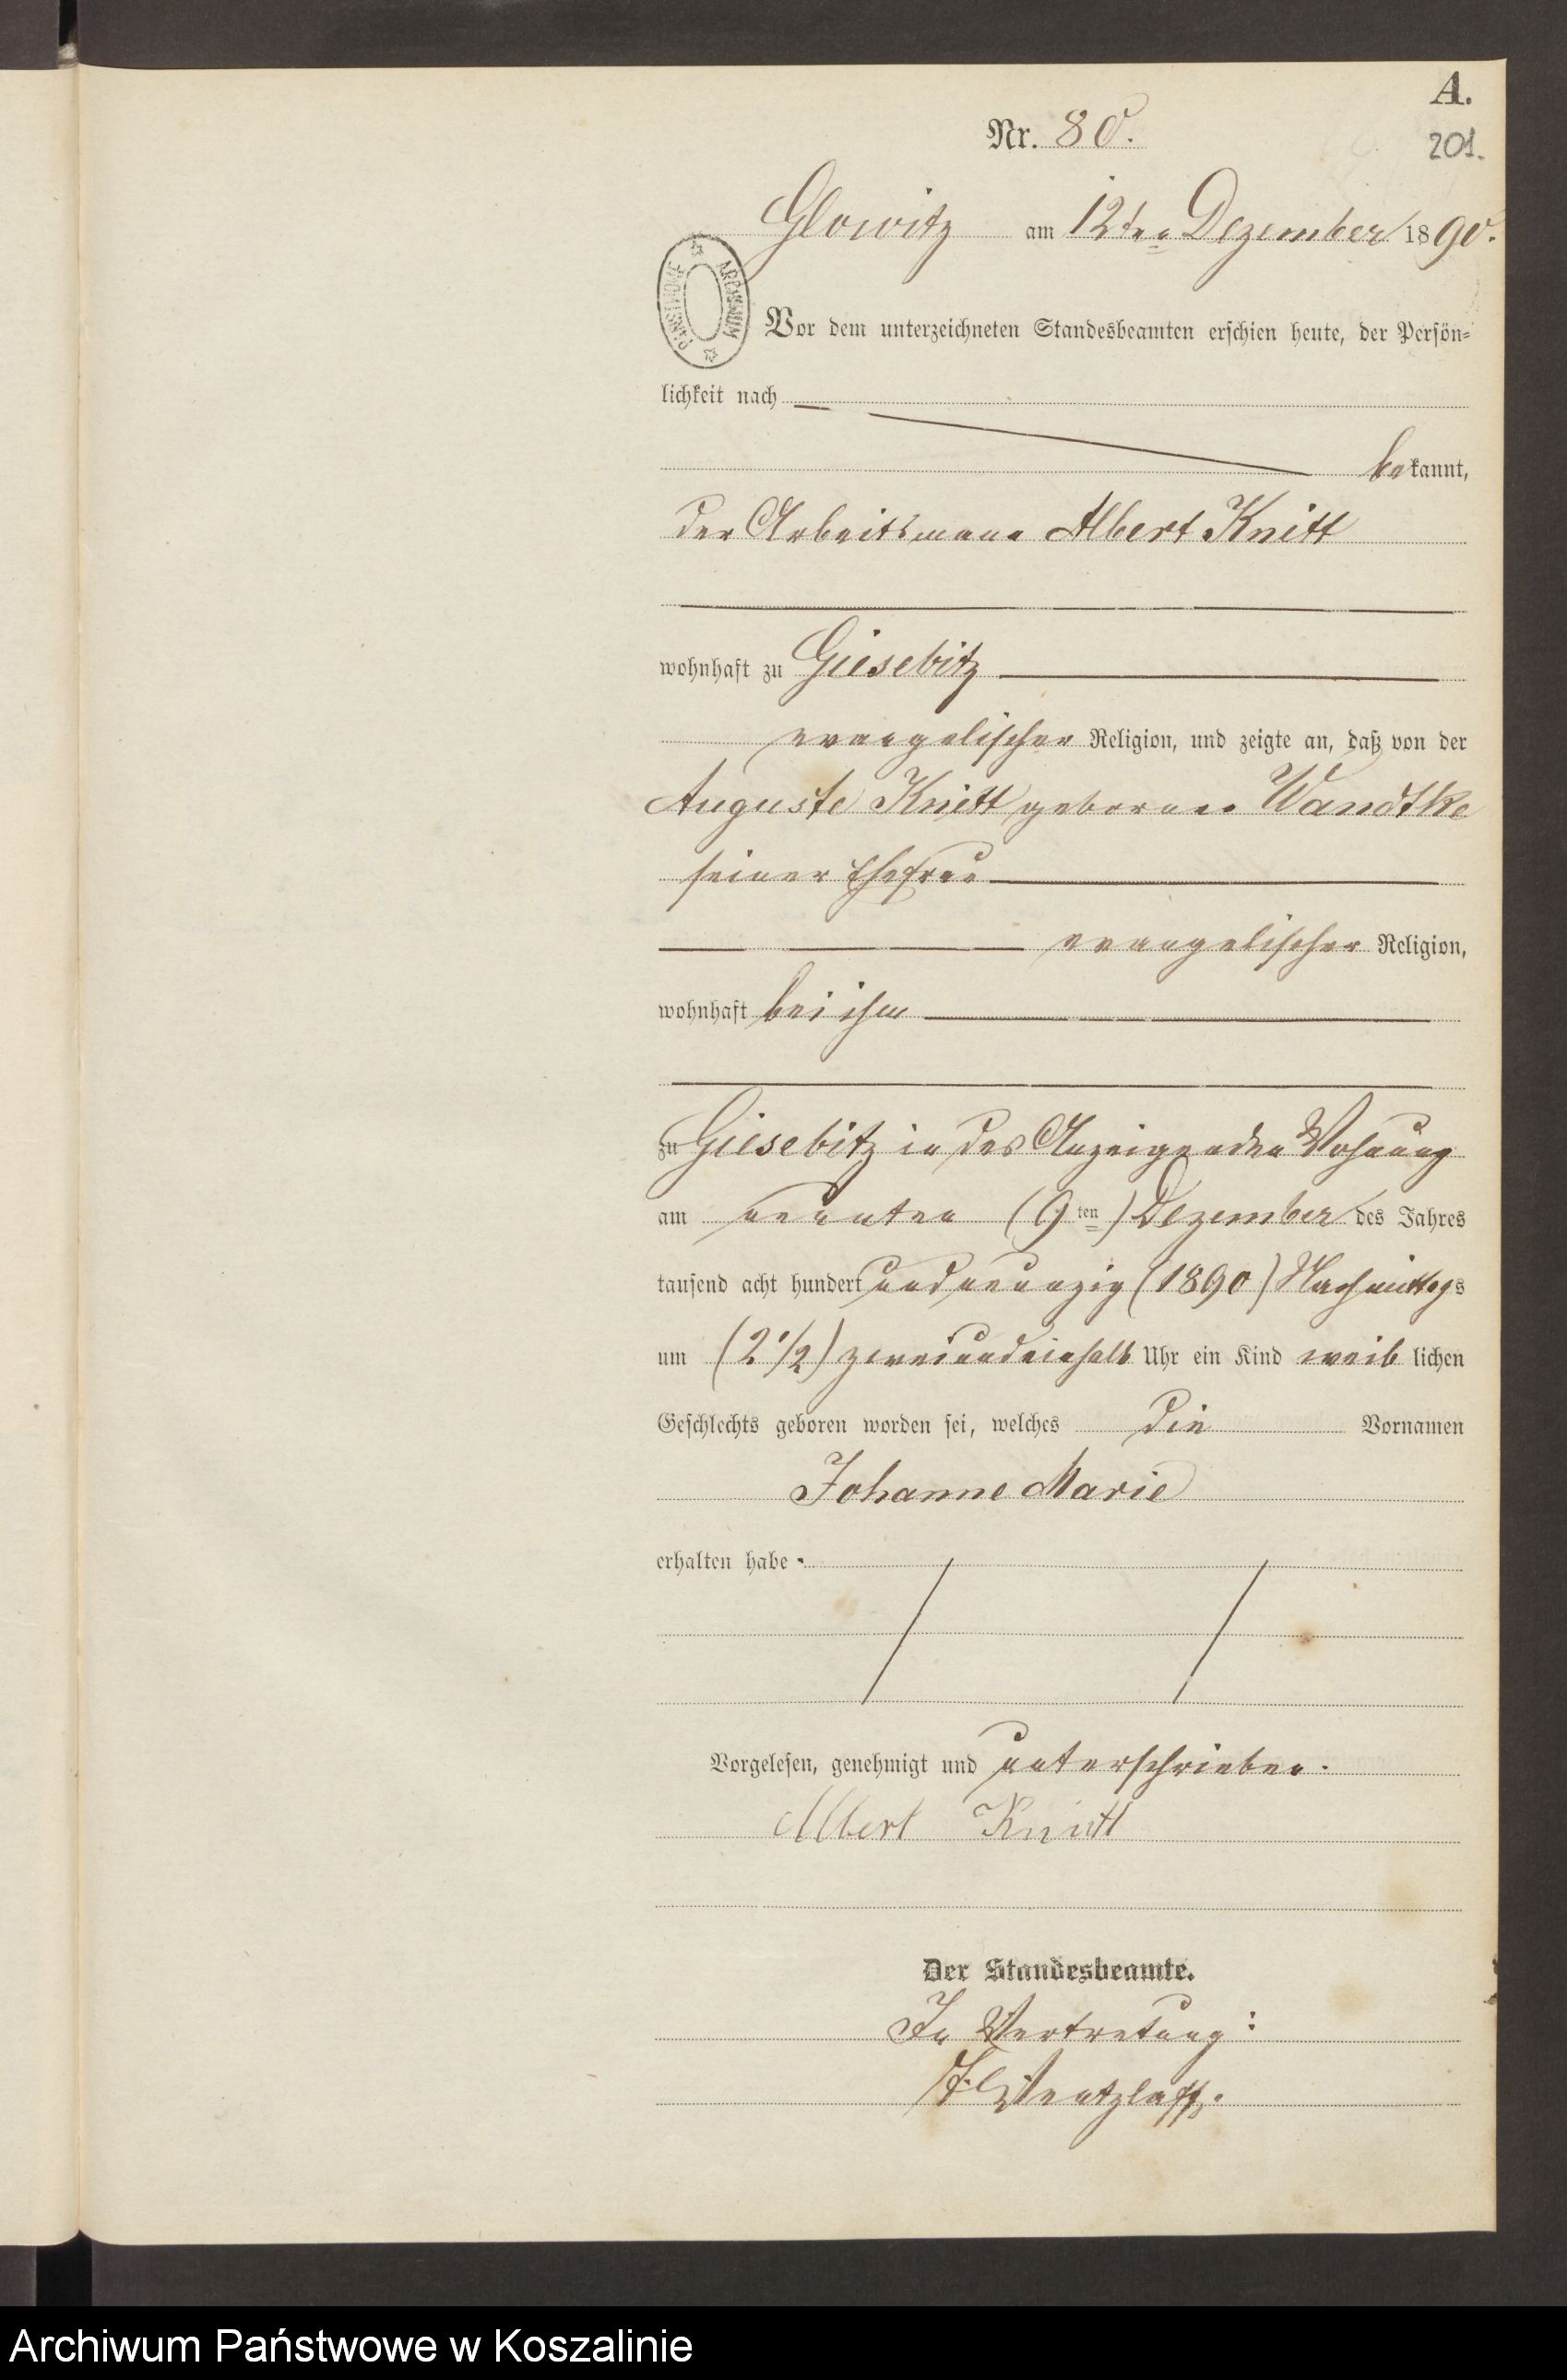 A.
Nr. 80.
201.
Glowitz am 12ten Dezember 1890.
PAŃSTWOWE ARCHIWUM
Vor dem unterzeichneten Standesbeamten erschien heute, der Persön-
lichkeit nach
bekannt,
der Arbeitsmann Albert Knitt
wohnhaft zu Giesebitz
evangelischer Religion, und zeigte an, daß von der
Auguste Knitt geborene Wandtke
seiner Ehefrau
evangelischer Religion,
wohnhaft bei ihm
zu Giesebitz in des Anzeigenden Wohnung
am neunten (9ten) Dezember des Jahres
tausend acht hundert und neunzig (1890) Nachmittags
um (2 1/2) zweiundeinhalb Uhr ein Kind weiblichen
Geschlechts geboren worden sei, welches die Vornamen
Johanne Marie
erhalten habe.
Vorgelesen, genehmigt und unterschrieben.
Albert Knitt
Der Standesbeamte.
In Vertretung:
Wentzlaff.
Archiwum Państwowe w Koszalinie